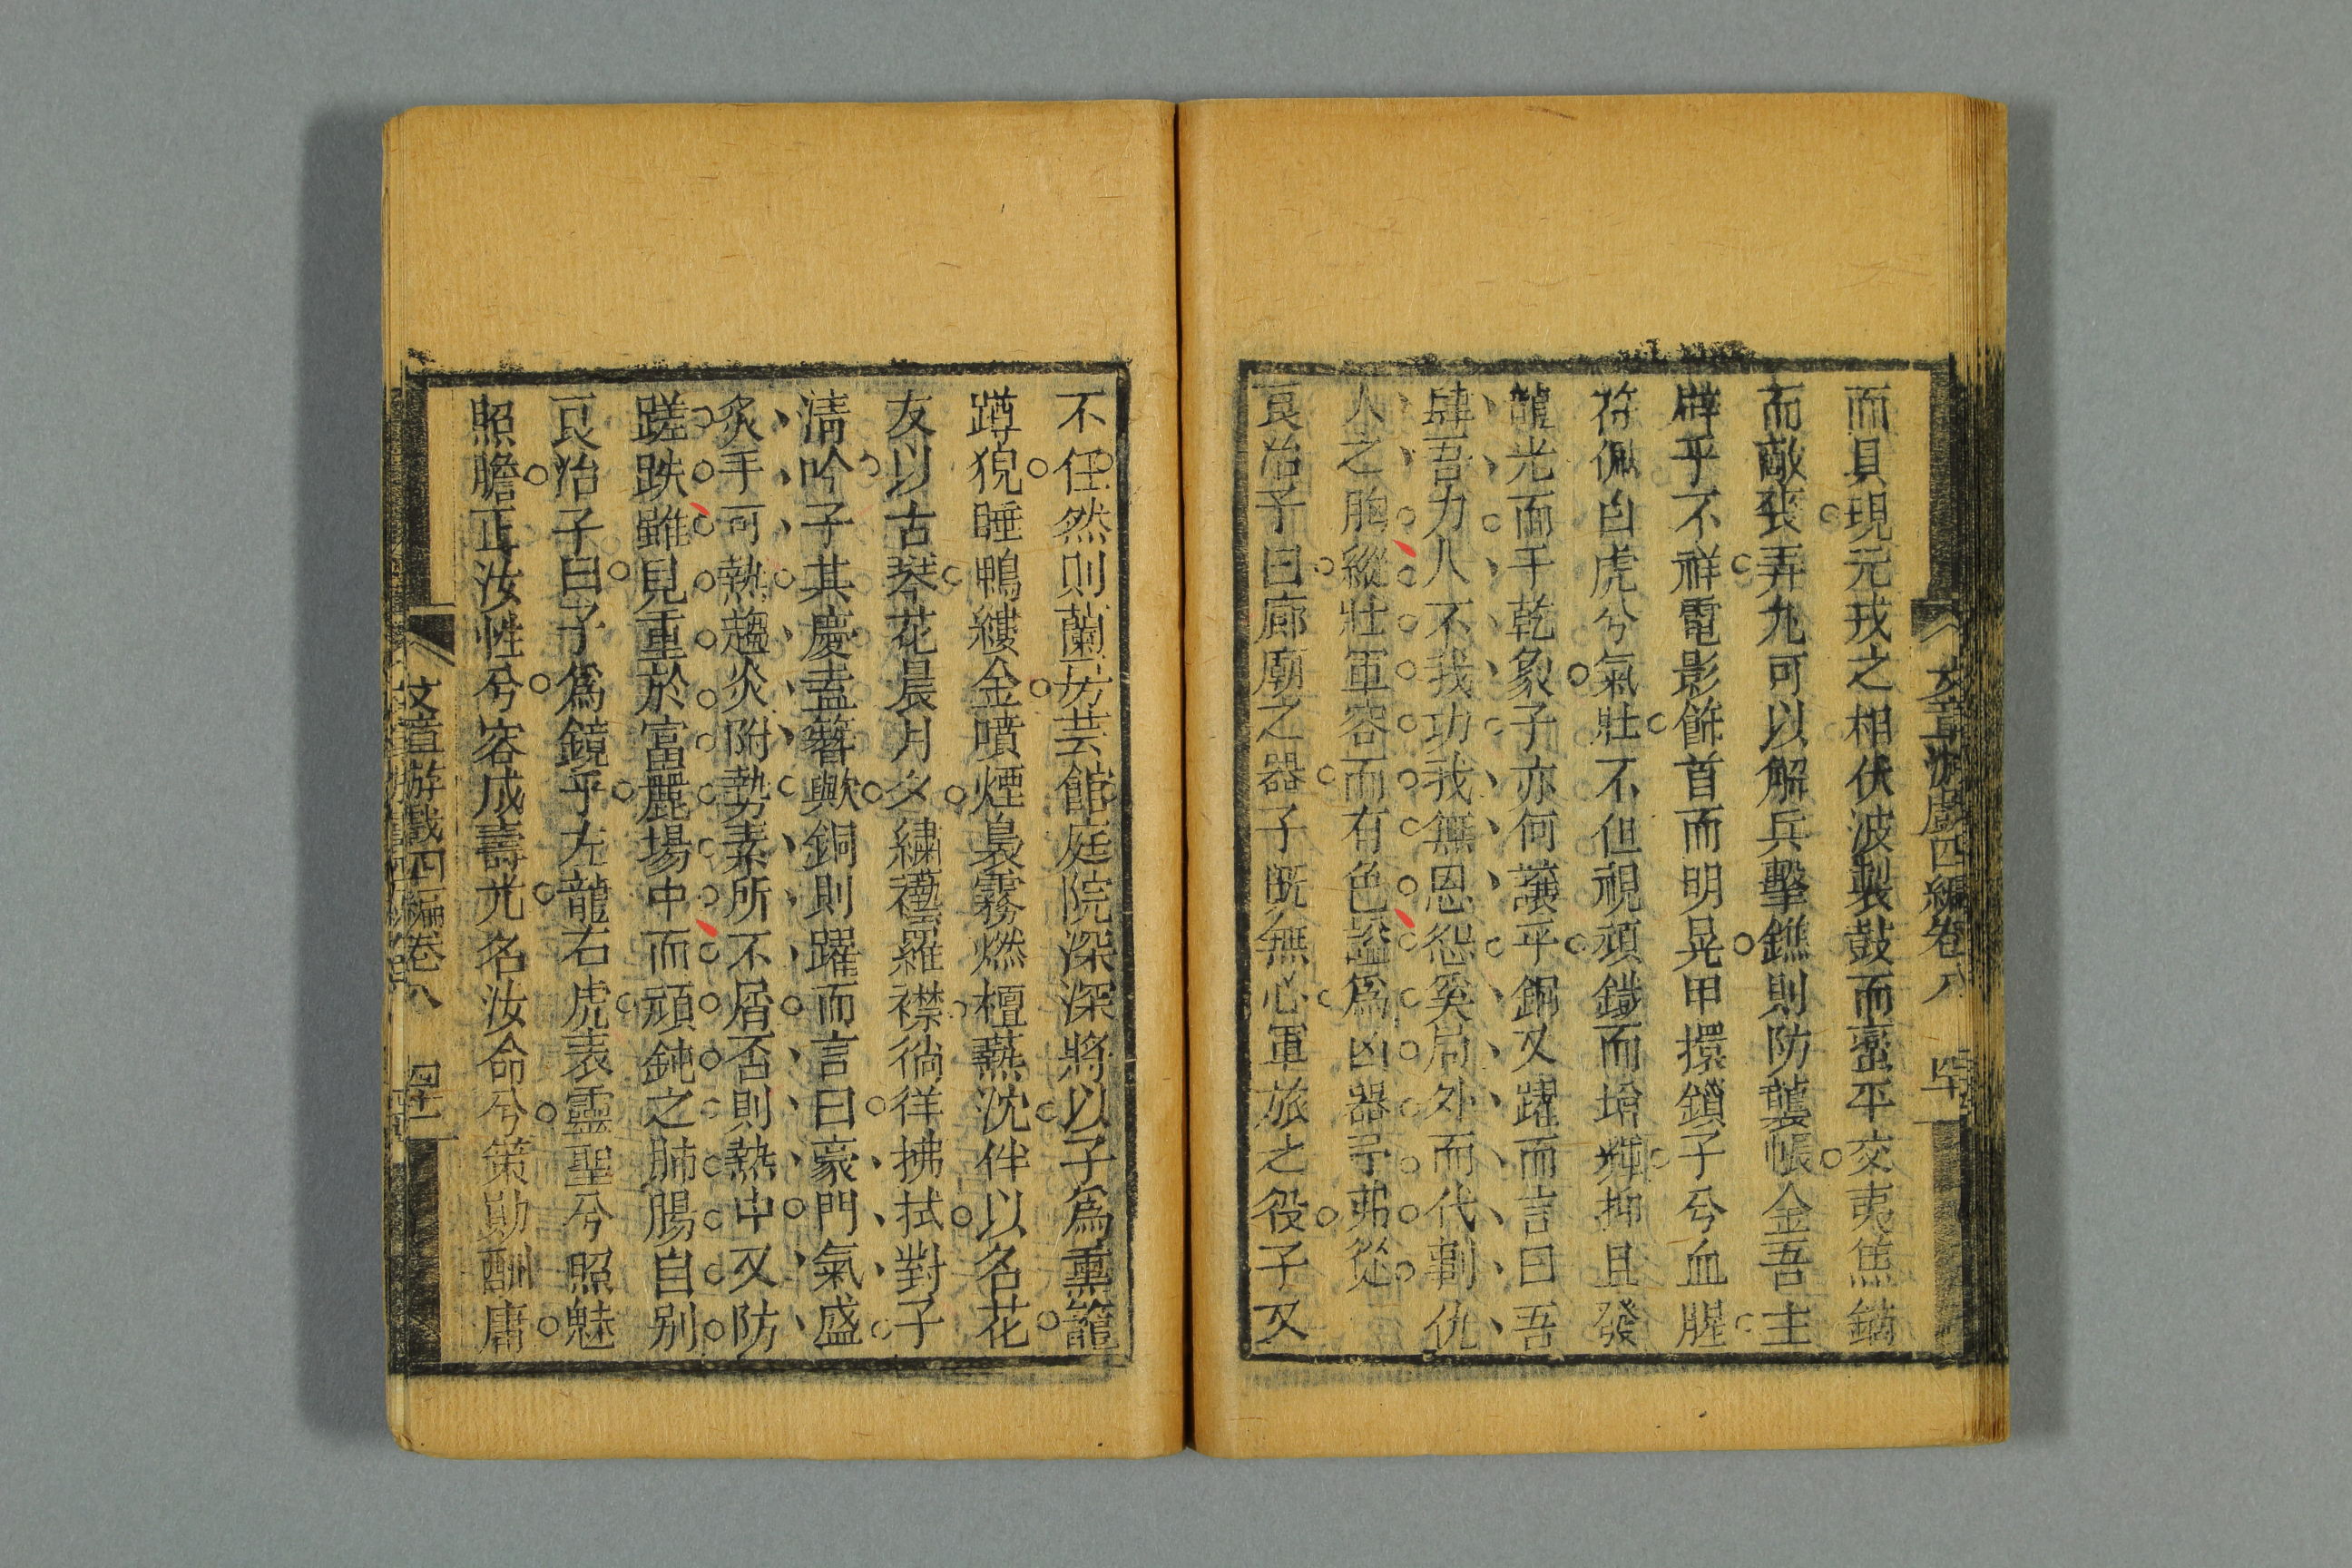 而具現元戎之相伏波製鼓而蠻平交夷焦鏑
而敵丧弄九可以解兵擊鐎則防襲帳金吾主
辟乎不祥電影飾首而明晃甲擐鎖子兮血腥
符佩白虎兮氣壯不但視頑鐵而增輝抑且發
龍光而手乾象子亦何讓乎銅又躍而言曰吾
肆吾力人不我功我無恩怨奚局外而代剸仇
人之胸縱壯軍容而有色謚爲凶器予弗從
哀冶子曰廊廟之器子既無心軍旅之役子又
文章游戲四編卷八
不任然則蘭房芸館庭院深深將以子爲熏籠
蹲猊睡鴨縷金噴煙裊霧燃檀爇沈伴以名花
友以古琴花晨月夕繡褹羅襟徜徉拂拭對子
淸吟子其慶盍簪歟銅則躍而言曰豪門氣盛
炙手可熱趨炎附勢素所不屑否則熱中又防
蹉跌雖見重於富麗場中而頑鈍之肺腸自别
哀冶子曰子爲鏡乎左龍右虎表靈聖兮照魅
照膽正汝性兮容成壽光名汝命兮策勛酬庸
文章游戲四編卷八